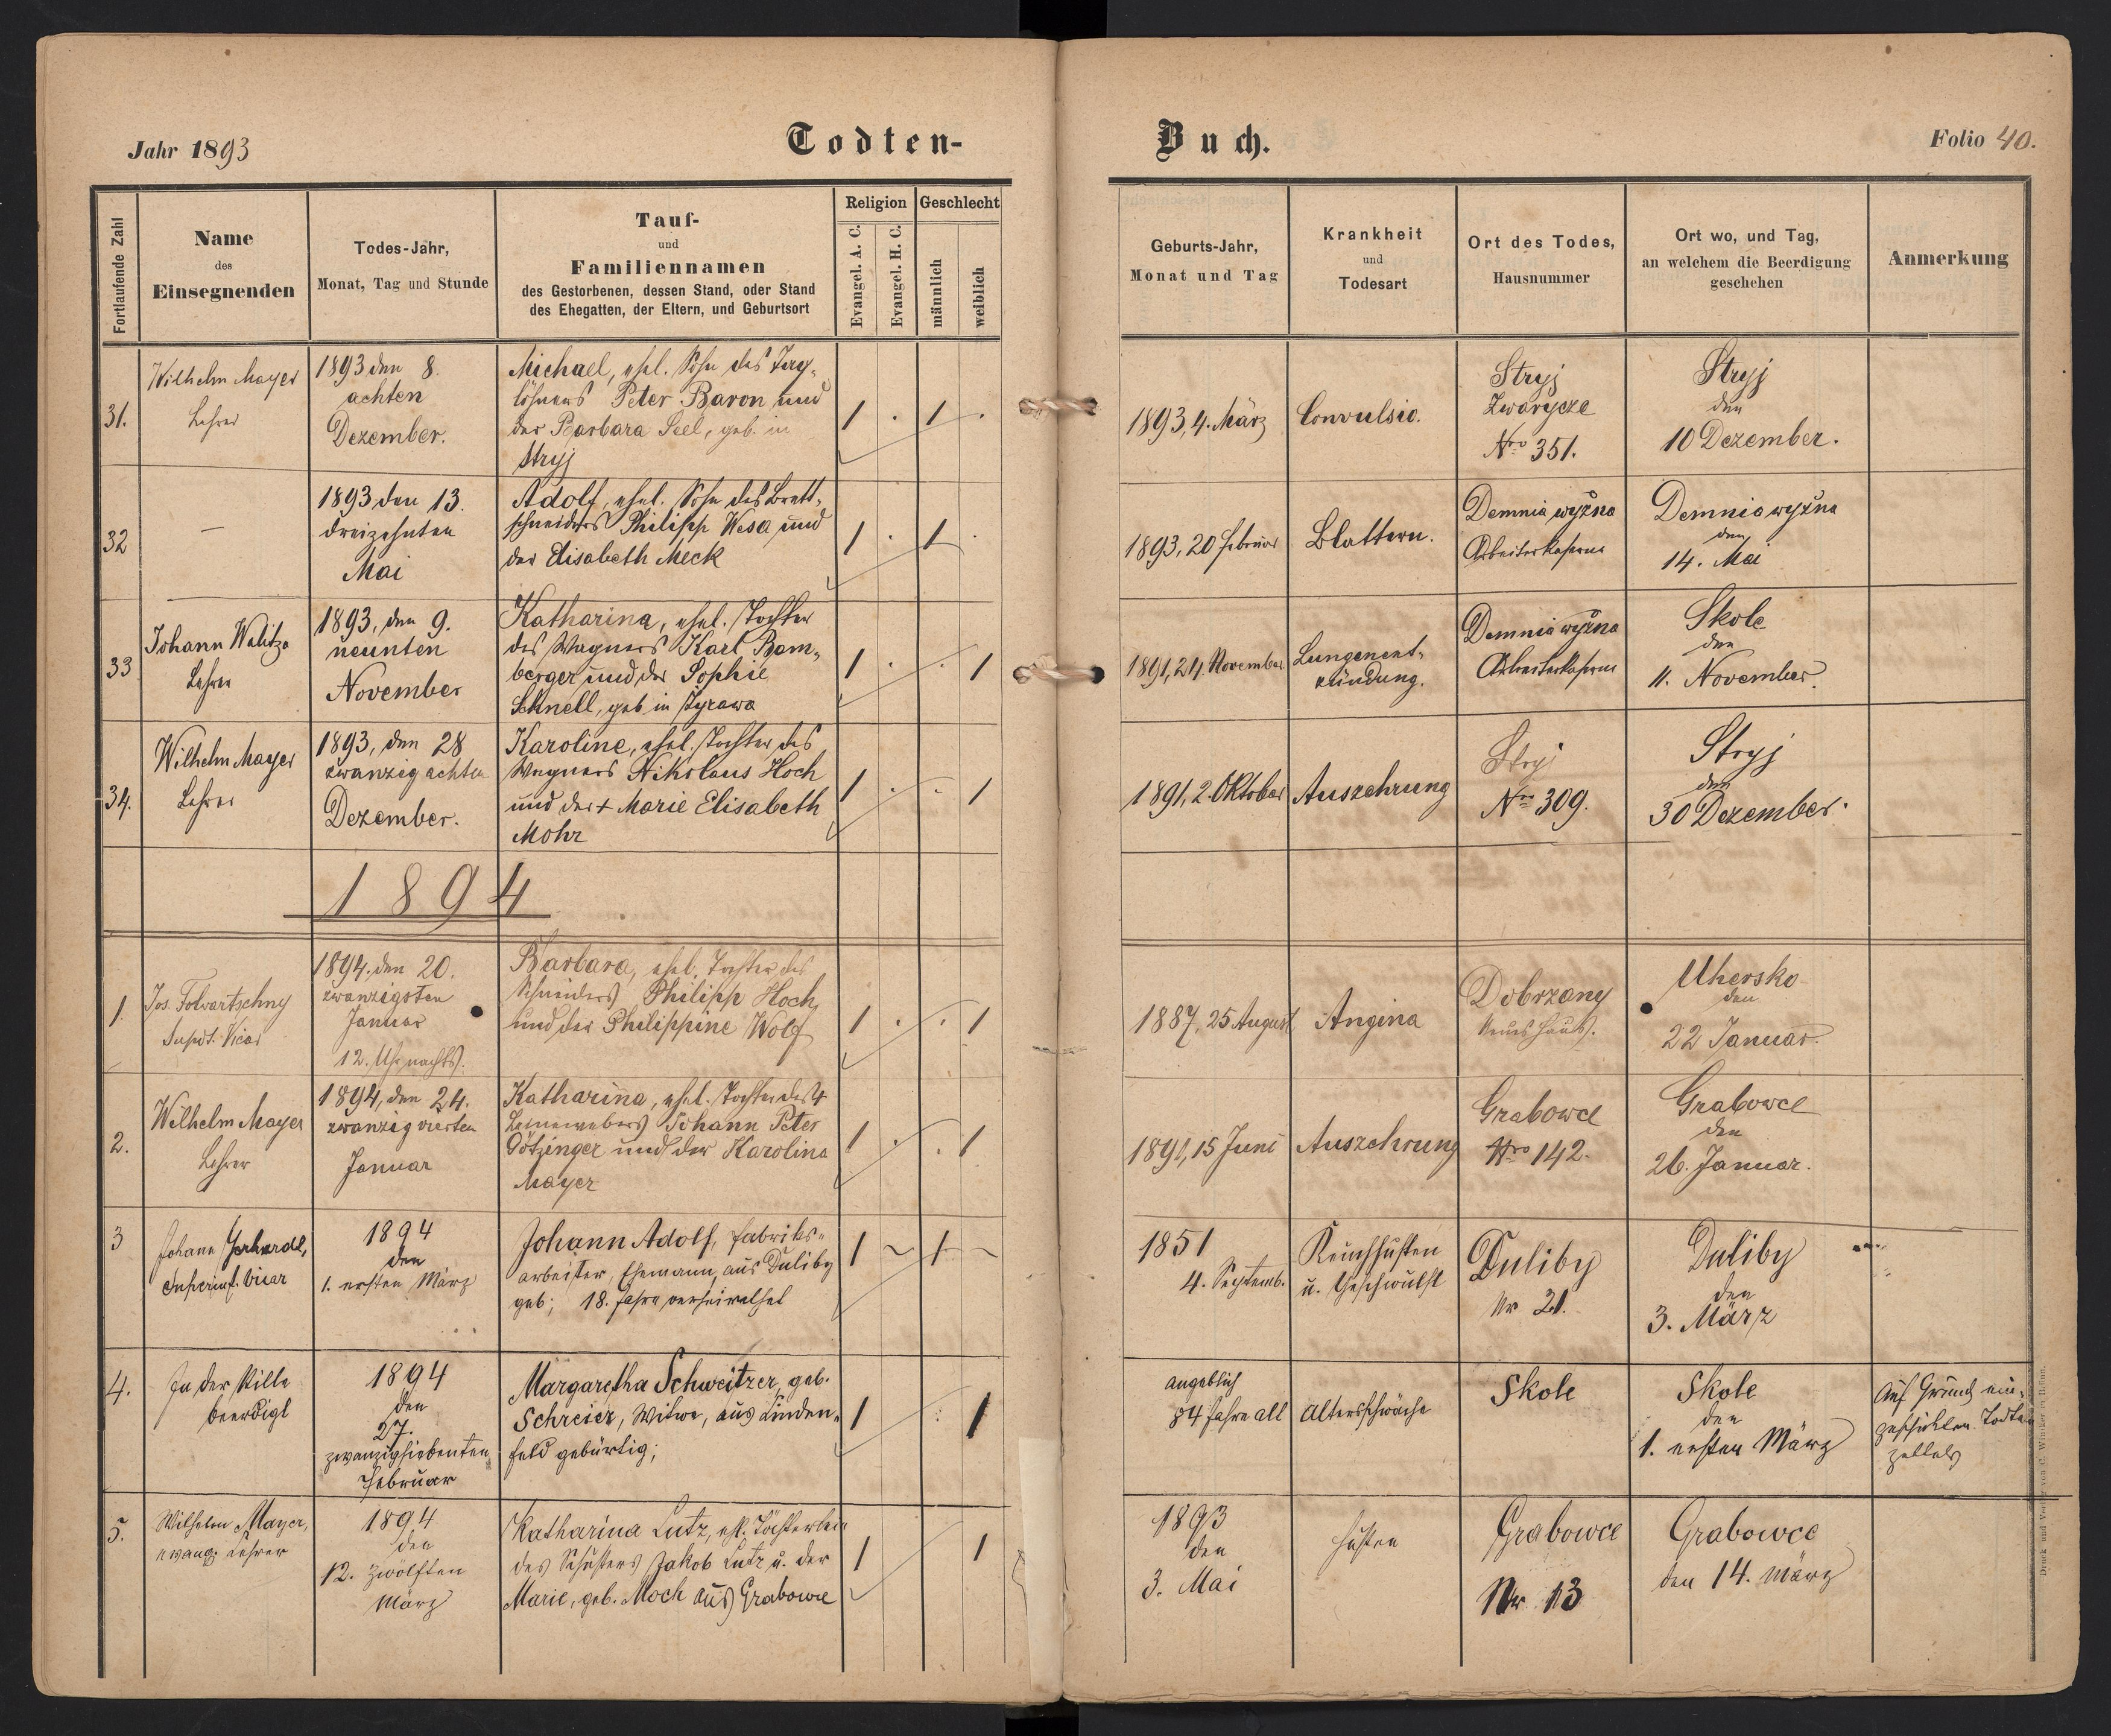 Jahr 1893
Todten-
Buch.
Folio 40.
Fortlaufende Zahl
Name
des
Einsegnenden
Todes-Jahr,
Monat, Tag und Stunde
Tauf-
und
Familiennamen
des Gestorbenen, dessen Stand, oder Stand
des Ehegatten, der Eltern, und Geburtsort
Religion
Evangel. A. C.
Evangel. H. C.
Geschlecht
männlich
weiblich
Geburts-Jahr,
Monat und Tag
Krankheit
und
Todesart
Ort des Todes,
Hausnummer
Ort wo, und Tag,
an welchem die Beerdigung
geschehen
Anmerkung
31.
Wilhelm Mayer
Lehrer
1893 den 8.
achten
Dezember.
Michael, ehel. Sohn des Tag-
löhners Peter Baron und
der Barbara Seel, geb. in
Stryj
1 . 1 .
1893, 4. März
Convulsio.
Stryj
Zwarycze
Nro 351.
Stryj
den
10 Dezember.
32
—
1893 den 13.
dreizehnten
Mai
Adolf, ehel. Sohn des Brett-
schneiders Philipp Wesa und
der Elisabeth Meck
1 . 1 .
1893, 20 Februar
Blattern.
Demnia wyżna
Arbeiterkaserne
Demnia wyżna
den
14. Mai
33
Johann Walitza
Lehrer
1893, den 9.
neunten
November
Katharina, ehel. Tochter
des Wagners Karl Bam-
berger und der Sophie
Schnell, geb in Synawa
1 . . 1
1891, 24. November
Lungenent-
zündung.
Demnia wyżna
Arbeiterkaserne
Skole
den
11. November.
34.
Wilhelm Mayer
Lehrer
1893, den 28
zwanzig achten
Dezember.
Karoline, ehel. Tochter des
Wagners Nikolaus Hoch
und der + Marie Elisabeth
Mohr
1 . . 1
1891, 2. Oktober
Auszehrung
Stryj
Nro 309.
Stryj
den
30 Dezember.
1894
1.
Jos. Folwartschny
Supdt. Vicar
1894. den 20.
zwanzigsten
Januar
12. Uhr nachts.
Barbara, ehel. Tochter des
Schneiders Philipp Hoch,
und der Philippine Wolf
1 . . 1
1887, 25 August
Angina
Dobrzany
neues Haus.
Uhersko
den
22 Januar.
2.
Wilhelm Mayer
Lehrer
1894, den 24.
zwanzig vierten
Januar
Katharina, ehel. Tochter des +
Leinewebers Johann Peter
Götzinger und der Karolina
Mayer
1 . . 1
1891, 15 Juni
Auszehrung
Grabowce
Nro 142.
Grabowce
den
26. Januar.
3
Johann Gerhardt,
Superint. Vicar
1894
den
1. ersten März
Johann Adolf, Fabriks-
arbeiter, Ehemann, aus Duliby
geb; 18. Jahre verheirathet
1 ~ 1 ~
1851
4. Septemb.
Keuchhusten
u. Geschwulst
Duliby
Nr 21.
Duliby
den
3. März
4.
In der Stille
beerdigt
1894
den
27.
zwanzigsiebenten
Februar
Margaretha Schweitzer, geb.
Schreier, Witwe, aus Linden-
feld gebürtig;
1 : 1
angeblich
84 Jahre alt
Altersschwäche
Skole
Skole
den
1. ersten März
Auf Grund ein-
geschickten Todten
zettels
5.
Wilhelm Mayer,
evang. Lehrer
1894
den
12. zwölften
März
Katharina Lutz, ehl. Töchterlein
des Schusters Jakob Lutz u. der
Marie, geb. Moch aus Grabowce
1 1
1893
den
3. Mai
Husten
Grabowce
Nr. 13
Grabowce
den 14. März
Druck und Verlag von C. Winiker in Brünn.